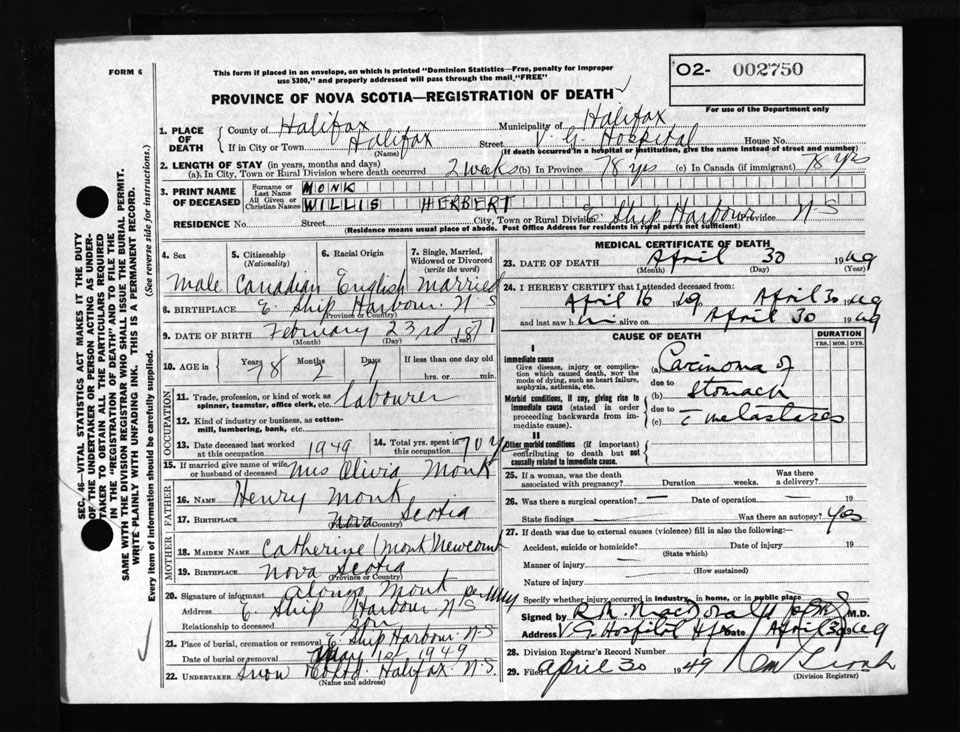 FORM 6
This form if placed in an envelope, on which is printed "Dominion Statistics—Free, penalty for improper
use $300," and properly addressed will pass through the mail "FREE"
02- 002750
For use of the Department only
PROVINCE OF NOVA SCOTIA—REGISTRATION OF DEATH
1. PLACE OF DEATH
County of Halifax Municipality of Halifax
If in City or Town Halifax Street V. G. Hospital House No.
(Name) (If death occurred in a hospital or institution, give the name instead of street and number)
2. LENGTH OF STAY (in years, months and days)
(a). In City, Town or Rural Division where death occurred 2 weeks (b) In Province 78 yrs (c) In Canada (if immigrant) 78 yrs
3. PRINT NAME OF DECEASED
Surname or Last Name MONK
All Given or Christian Names WILLIS HERBERT
RESIDENCE No. Street City, Town or Rural Division E. Ship Harbour Province N-S
(Residence means usual place of abode. Post Office Address for residents in rural parts not sufficient)
4. Sex 5. Citizenship (Nationality) 6. Racial Origin 7. Single, Married, Widowed or Divorced (write the word)
Male Canadian English Married
8. BIRTHPLACE E. Ship Harbour. N-S
(Province or Country)
9. DATE OF BIRTH February 23rd 1871
(Month) (Day)
10. AGE in Years 78 Months 2 Days 7 If less than one day old
hrs. or min.
OCCUPATION
11. Trade, profession, or kind of work as
spinner, teamster, office clerk, etc. labourer
12. Kind of industry or business, as cotton-
mill, lumbering, bank, etc.
13. Date deceased last worked
at this occupation 1949 14. Total yrs. spent in
this occupation 70 y
15. If married give name of wife
or husband of deceased Mrs Olivia Monk
FATHER
16. NAME Henry Monk
17. BIRTHPLACE Nova Scotia
MOTHER
18. MAIDEN NAME Catherine (Monk) Newcomb
19. BIRTHPLACE Nova Scotia
(Province or Country)
20. Signature of informant Alonzo Monk
Address E. Ship Harbour N-S
Relationship to deceased son
21. Place of burial, cremation or removal E. Ship Harbour. N-S
Date of burial or removal May 1st 1949
22. UNDERTAKER Snow Halifax N.S.
(Name and address)
MEDICAL CERTIFICATE OF DEATH
23. DATE OF DEATH April 30 1949
(Month) (Day) (Year)
24. I HEREBY CERTIFY that I attended deceased from:
April 16 1949 April 30 1949
and last saw him alive on April 30 1949
CAUSE OF DEATH DURATION
YRS. MOS. DYS.
I
Immediate cause
Give disease, injury or complica-
tion which caused death, NOT the
mode of dying, such as heart failure,
asphyxia, asthenia, etc.
(a) Carcinoma of
due to Stomach
Morbid conditions, if any, giving rise to
immediate cause (stated in order
proceeding backwards from im-
mediate cause).
due to
(c) c metastases
II
Other morbid conditions (if important)
contributing to death but not
causally related to immediate cause.
25. If a woman, was the death
associated with pregnancy? Duration weeks. Was there
a delivery?
26. Was there a surgical operation? — Date of operation — 19
State findings — Was there an autopsy? Yes
27. If death was due to external causes (violence) fill in also the following:—
Accident, suicide or homicide? Date of injury 19
(State which)
Manner of injury
(How sustained)
Nature of injury
Specify whether injury occurred in industry, in home, or in public place
Signed by R. M. MacDonald M.D.
Address V. G Hospital Hfx Date April 30 1949
28. Division Registrar's Record Number
29. Filed April 30 1949
(Division Registrar)
SEC. 46—VITAL STATISTICS ACT MAKES IT THE DUTY
OF THE UNDERTAKER OR PERSON ACTING AS UNDER-
TAKER TO OBTAIN ALL THE PARTICULARS REQUIRED
IN THE "REGISTRATION OF DEATH" AND TO FILE THE
SAME WITH THE DIVISION REGISTRAR WHO SHALL ISSUE THE BURIAL PERMIT.
WRITE PLAINLY WITH UNFADING INK. THIS IS A PERMANENT RECORD.
Every item of information should be carefully supplied. (See reverse side for instructions.)